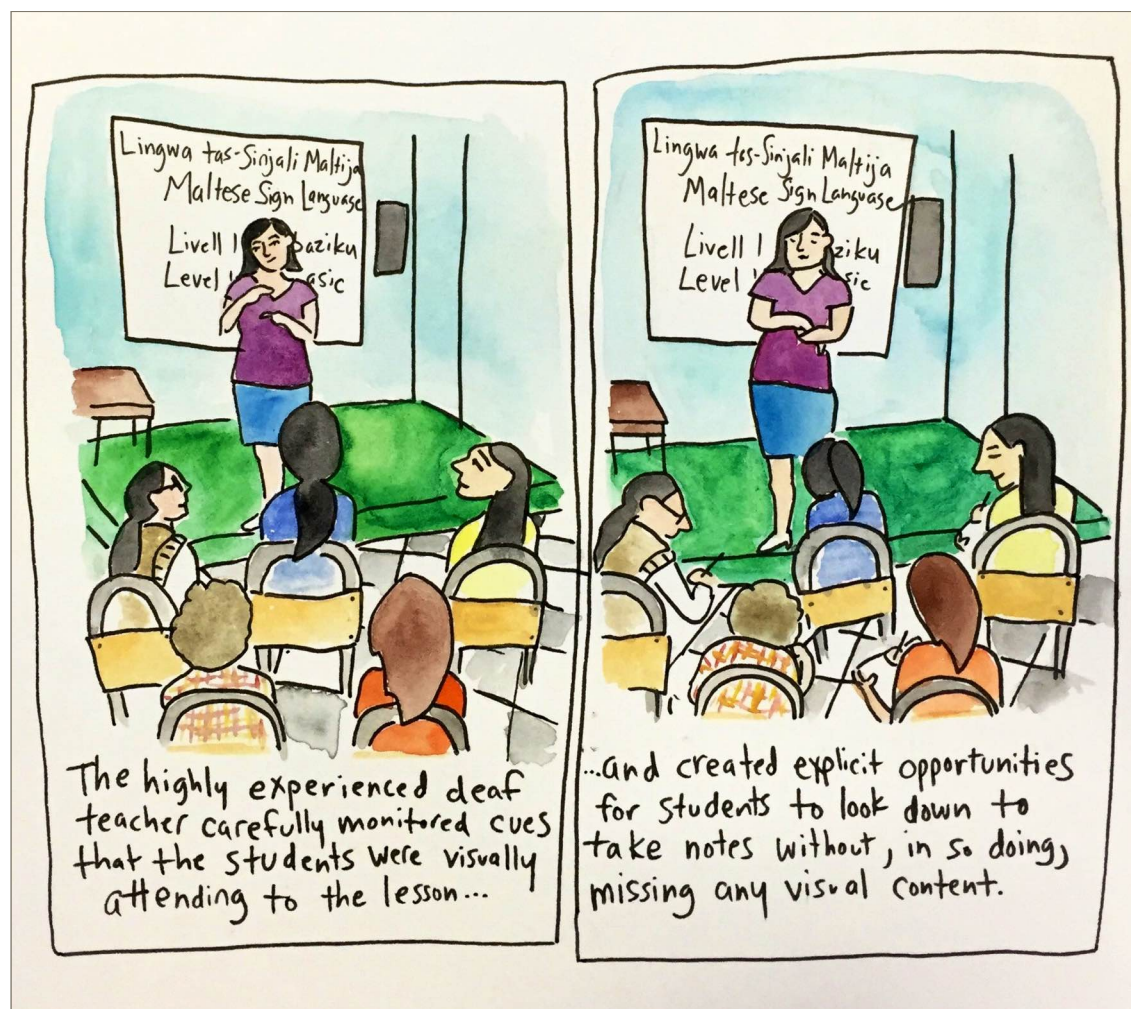 Lingwa tas-Sinjali Maltija
Maltese Sign Language
Livell 1 baziku
Level asic
The highly experienced deaf
teacher carefully monitored cues
that the students were visually
attending to the lesson...
Lingwa tas-Sinjali Maltija
Maltese Sign Language
Livell 1 ziku
Level sic
...and created explicit opportunities
for students to look down to
take notes without, in so doing,
missing any visual content.